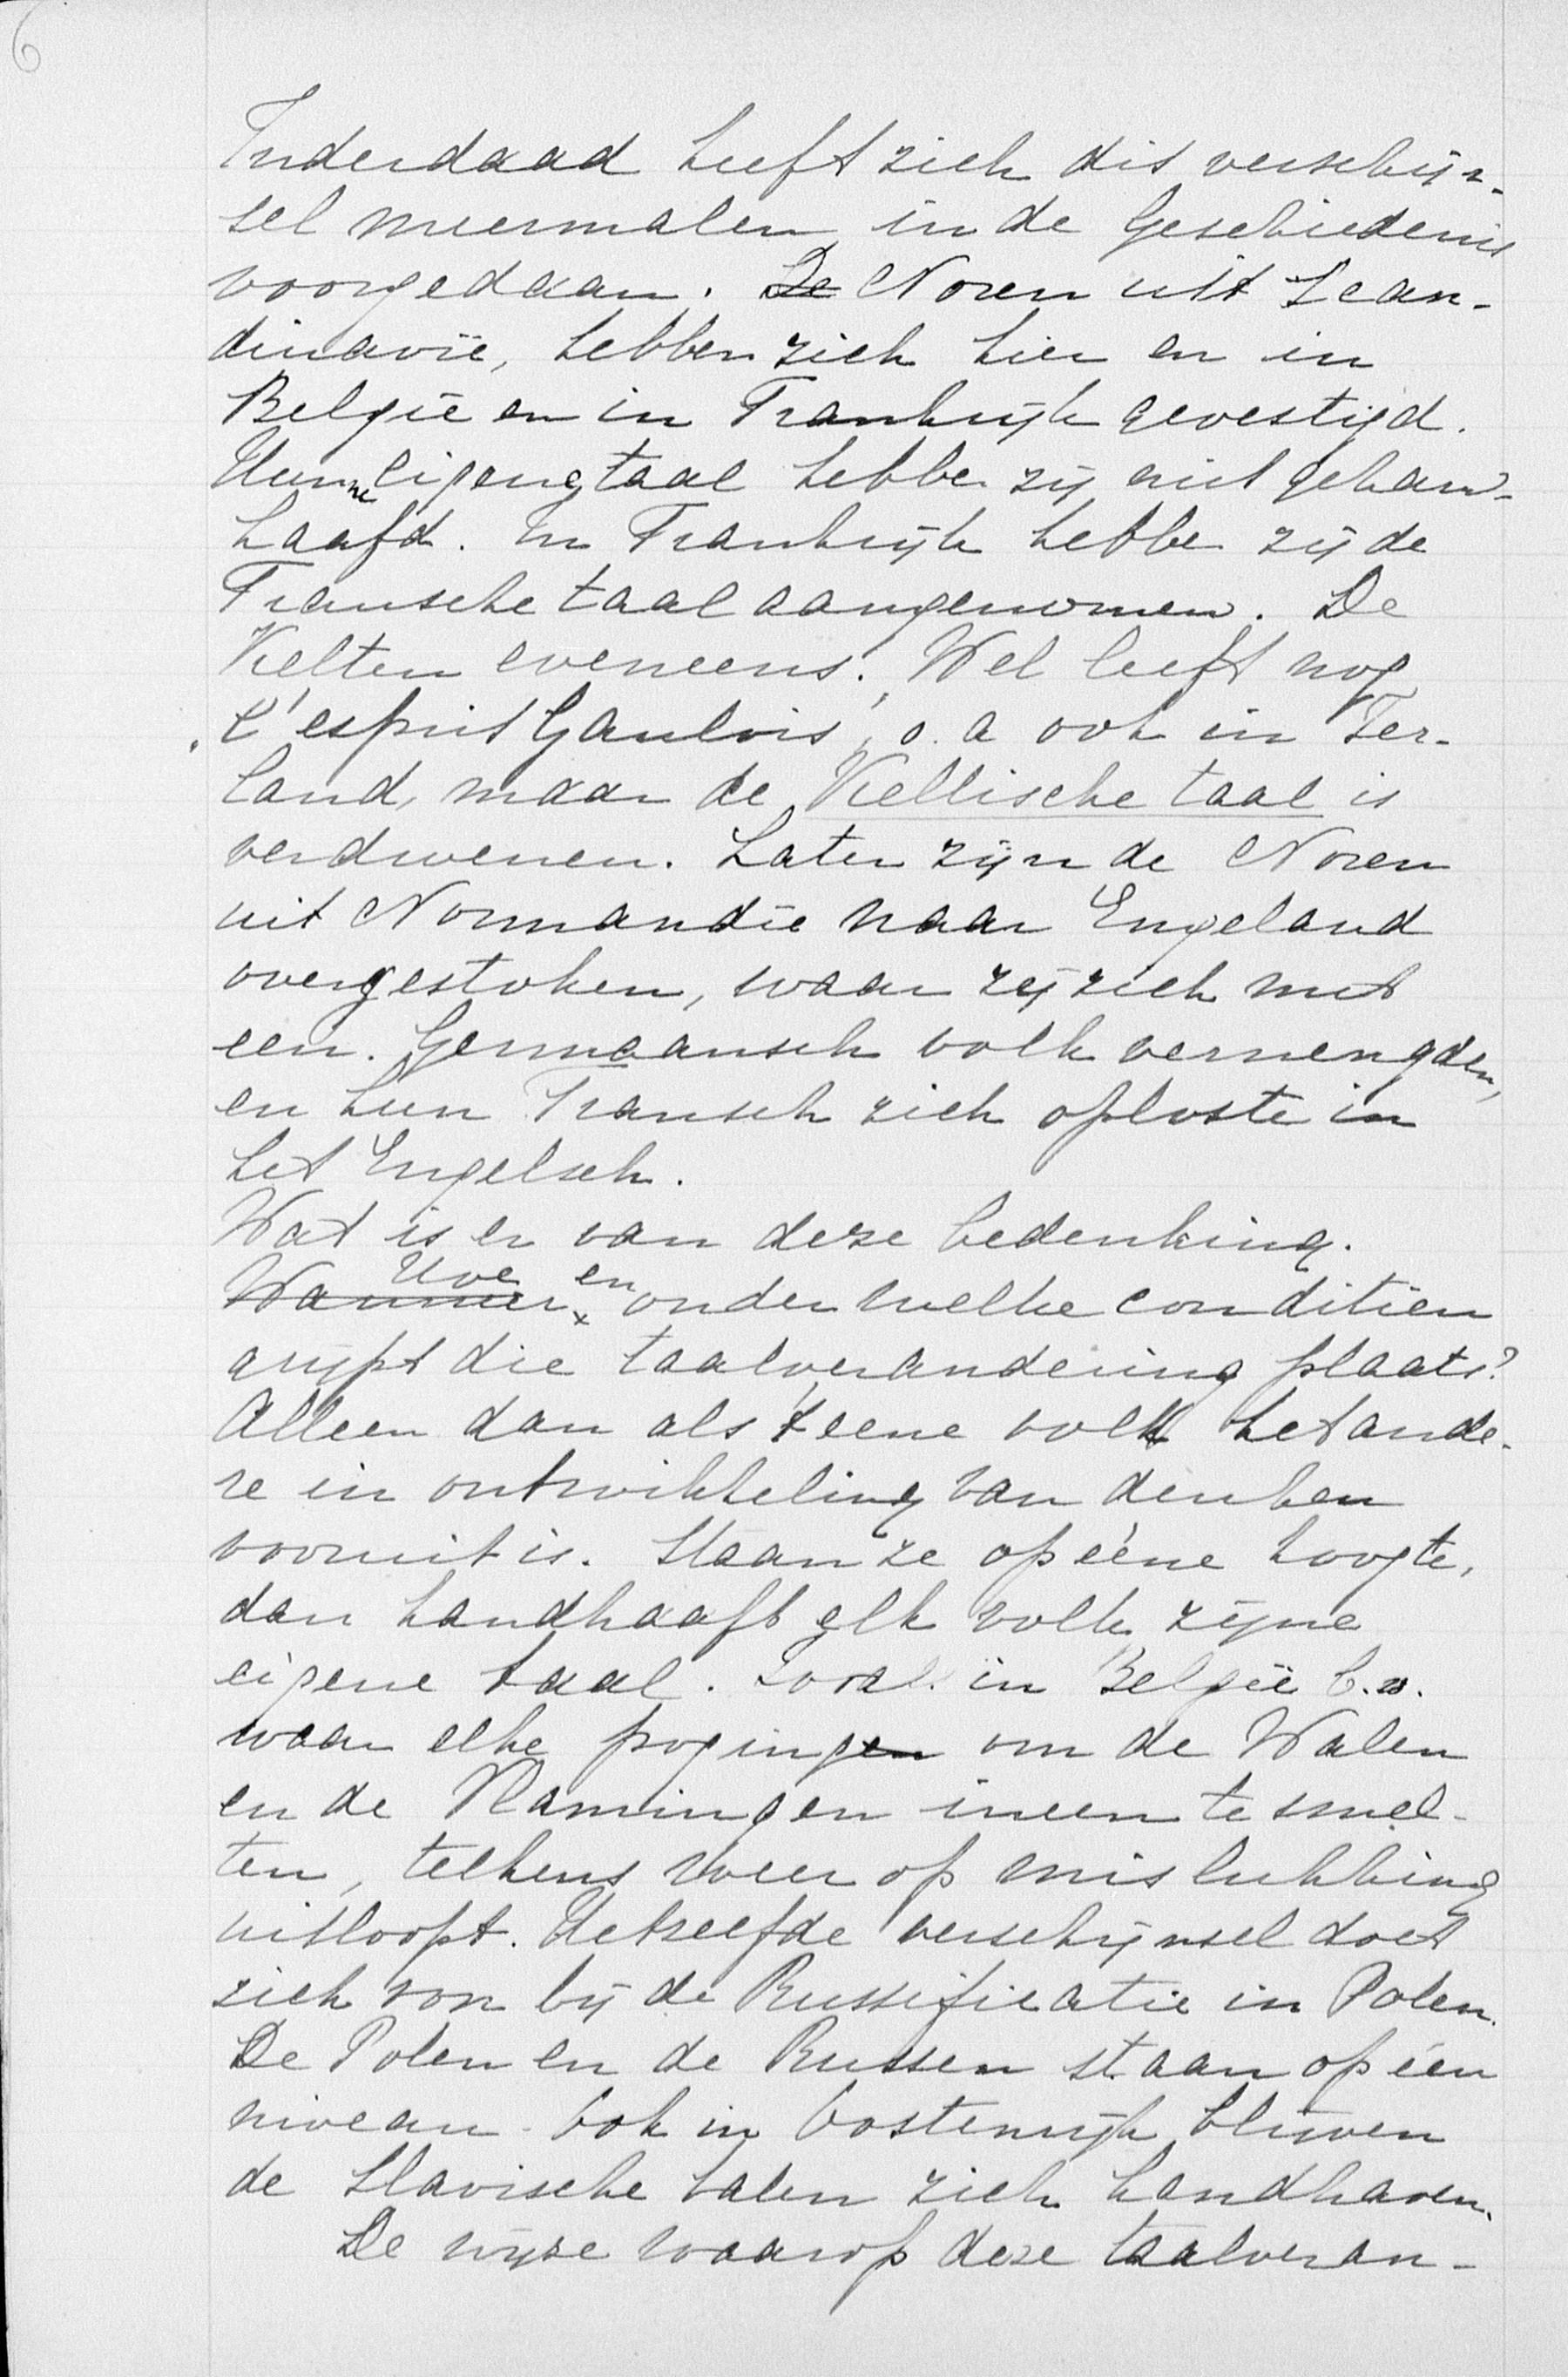 6
Inderdaad heeft zich dit verschijn-
sel meermalen in de Geschiedenis
voorgedaan. De Noren uit Scan-
dinavië, hebben zich hier en in
België en in Frankrijk gevestigd.
Hunne eigene taal hebben zij niet gehand-
haafd. In Frankrijk hebben zij de
Fransche taal aangenomen. De
Kelten eveneens. Wel leeft nog
"l'esprit Gaulois", o. a ook in Ier-
land, maar de Keltische taal is
verdwenen. Later zijn de Noren
uit Normandië naar Engeland
overgestoken, waar zij zich met
een Germaansch volk vermengden,
en hun Fransch zich oploste in
het Engelsch.
Wat is er van deze bedenking.
Wanneer Hoe en onder welke conditiën
grijpt die taalverandering plaats?
Alleen dan als 't eene volk het ande-
re in ontwikkeling van denken
vooruit is. Staan ze op ééne hoogte,
dan handhaaft elk volk zijne
eigene taal. Zooals in België b.v.
waar elke pogingen om de Walen
en de Vlamingen ineen te smel-
ten, telkens weer op mislukking
uitloopt. Hetzelfde verschijnsel doet
zich voor bij de Russificatie in Polen.
De Polen en de Russen staan op één
niveau. Ook in Oostenrijk blijven
de Slavische talen zich handhaven.
De wijze waarop deze taalveran-